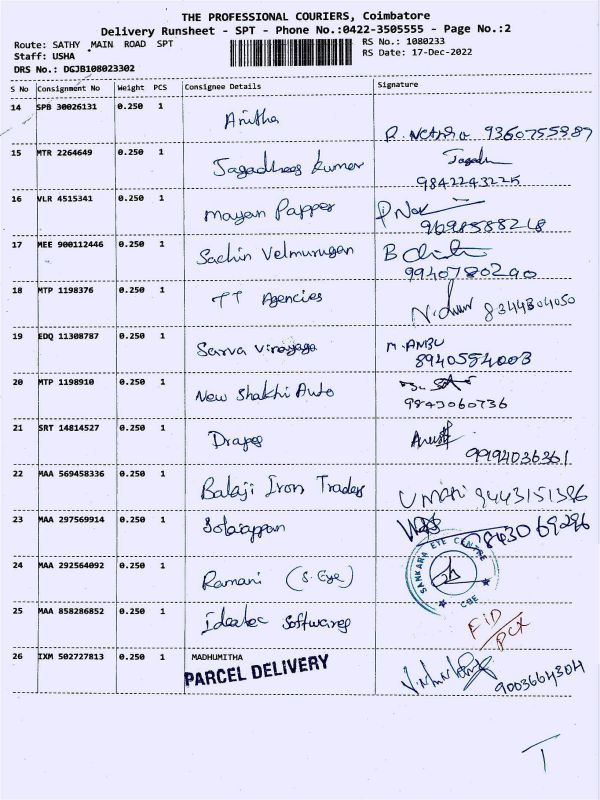 THE PROFESSIONAL COURIERS, Coimbatore
Delivery Runsheet - SPT - Phone No.:0422-3505555 - Page No.:2
Route: SATHY MAIN ROAD SPT RS No.: 1080233
Staff: USHA RS Date: 17-Dec-2022
DRS No.: DGJB108023302
S No Consignment No Weight PCS Consignee Details Signature
14 SPB 30026131 0.250 1 Anitha
9360755987
15 MTR 2264649 0.250 1 Jagadhees Kumar
9842243225
16 VLR 4515341 0.250 1 Mayan Papper
9698588218
17 MEE 900112446 0.250 1 Sachin Velmurugan
9940780290
18 MTP 1198376 0.250 1 TT Agencies
8344304050
19 EDQ 11308787 0.250 1 Sarva Vinayaga M. ANBU
8940554003
20 MTP 1198910 0.250 1 New Shakhi Auto
9843060736
21 SRT 14814527 0.250 1 Drapes
9994036361
22 MAA 569458336 0.250 1 Balaji Iron Traders Umari 9443151386
23 MAA 297569914 0.250 1 Solaiappan 9843069296
24 MAA 292564092 0.250 1 Ramani (S. Eye) SANKARA EYE CENTRE
CBE
25 MAA 858286852 0.250 1 Ideatec Softwares FID/PCX
26 IXM 502727813 0.250 1 MADHUMITHA
PARCEL DELIVERY 9003664304
T